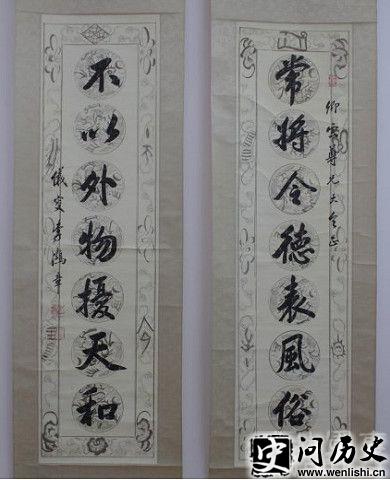 常將令德表風俗
卿雲尊兄大人正
不以外物擾天和
儀叟李鴻章
问历史
www.wenlishi.cn